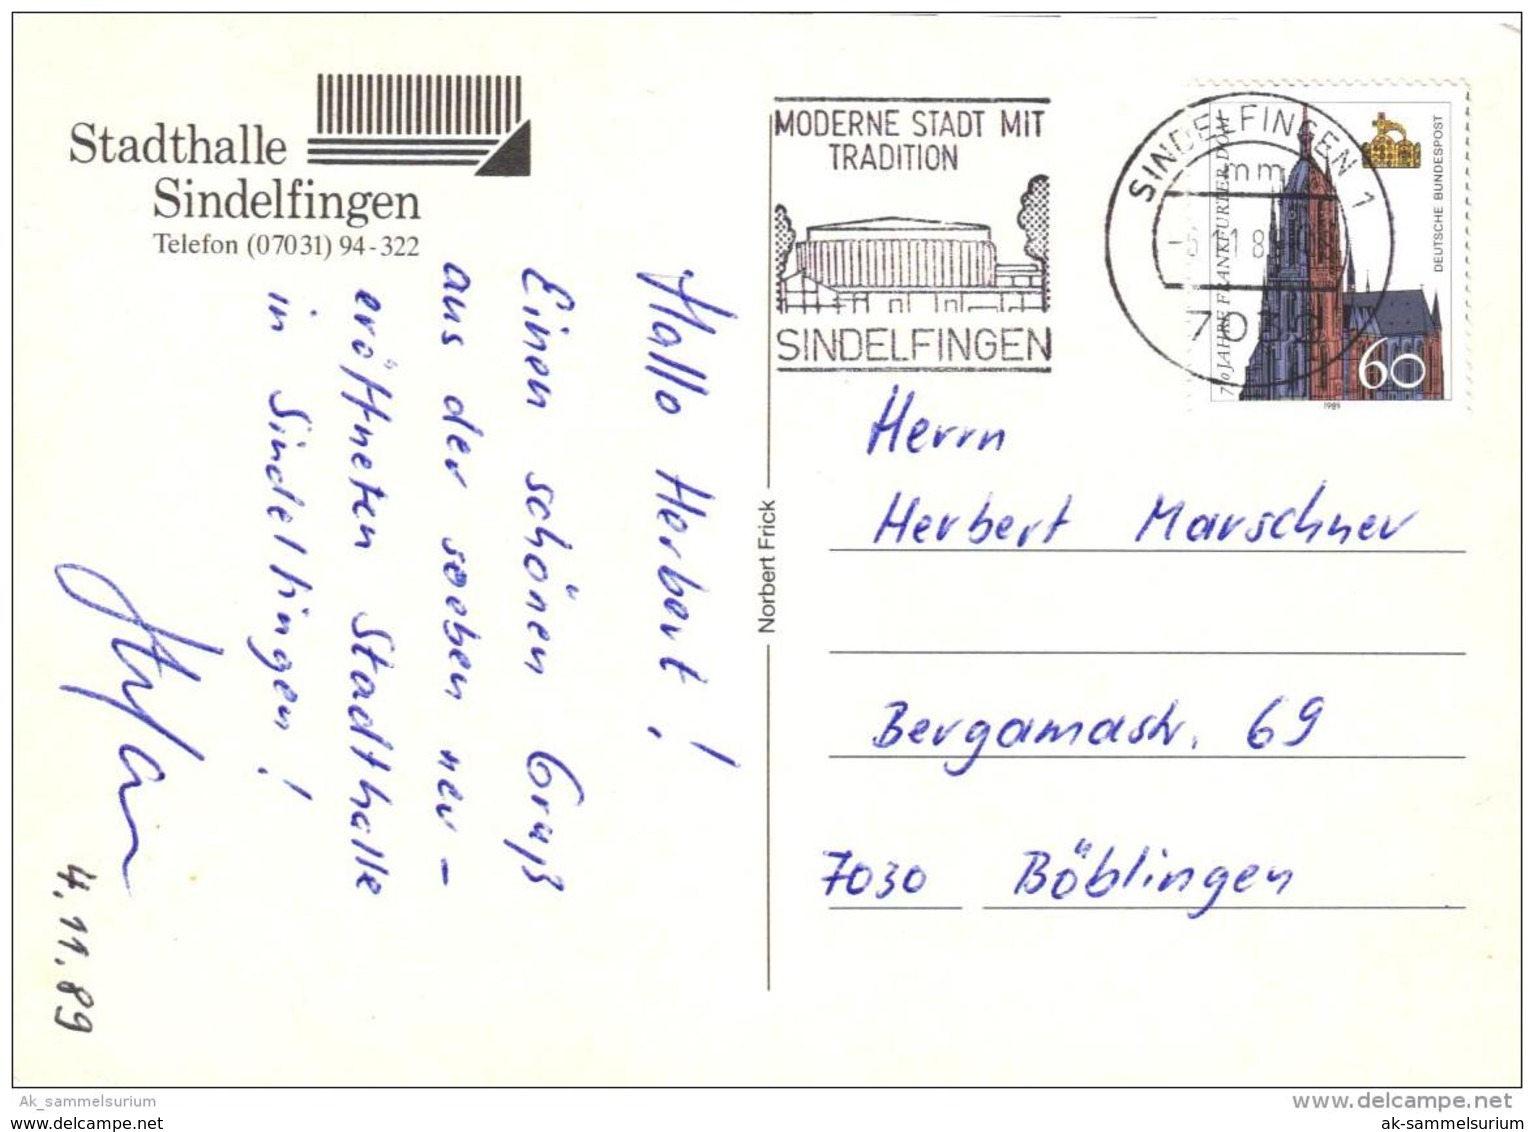 Stadthalle
Sindelfingen
Telefon (07031) 94-322
Hallo Herbert!
Einen schönen Gruß
aus der soeben neu-
eröffneten Stadthalle
in Sindelfingen!
4.11.89
Norbert Frick
MODERNE STADT MIT
TRADITION
SINDELFINGEN
SINDELFINGEN 1
mm
DEUTSCHE BUNDESPOST
JAHRE FRANKFURTER DOM
60
1989
Herrn
Herbert Marschner
Bergamastr. 69
7030 Böblingen
Ak_sammelsurium
www.delcampe.net
ak-sammelsurium
ak-sammelsurium